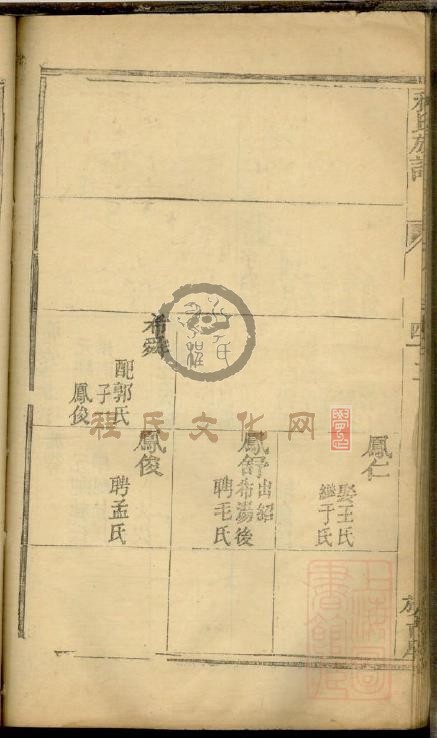 程氏族譜
希舜
配郭氏
子
鳳俊
鳳仁
娶王氏
繼于氏
鳳舒
出紹
希湯後
聘毛氏
鳳俊
聘孟氏
程氏文化网